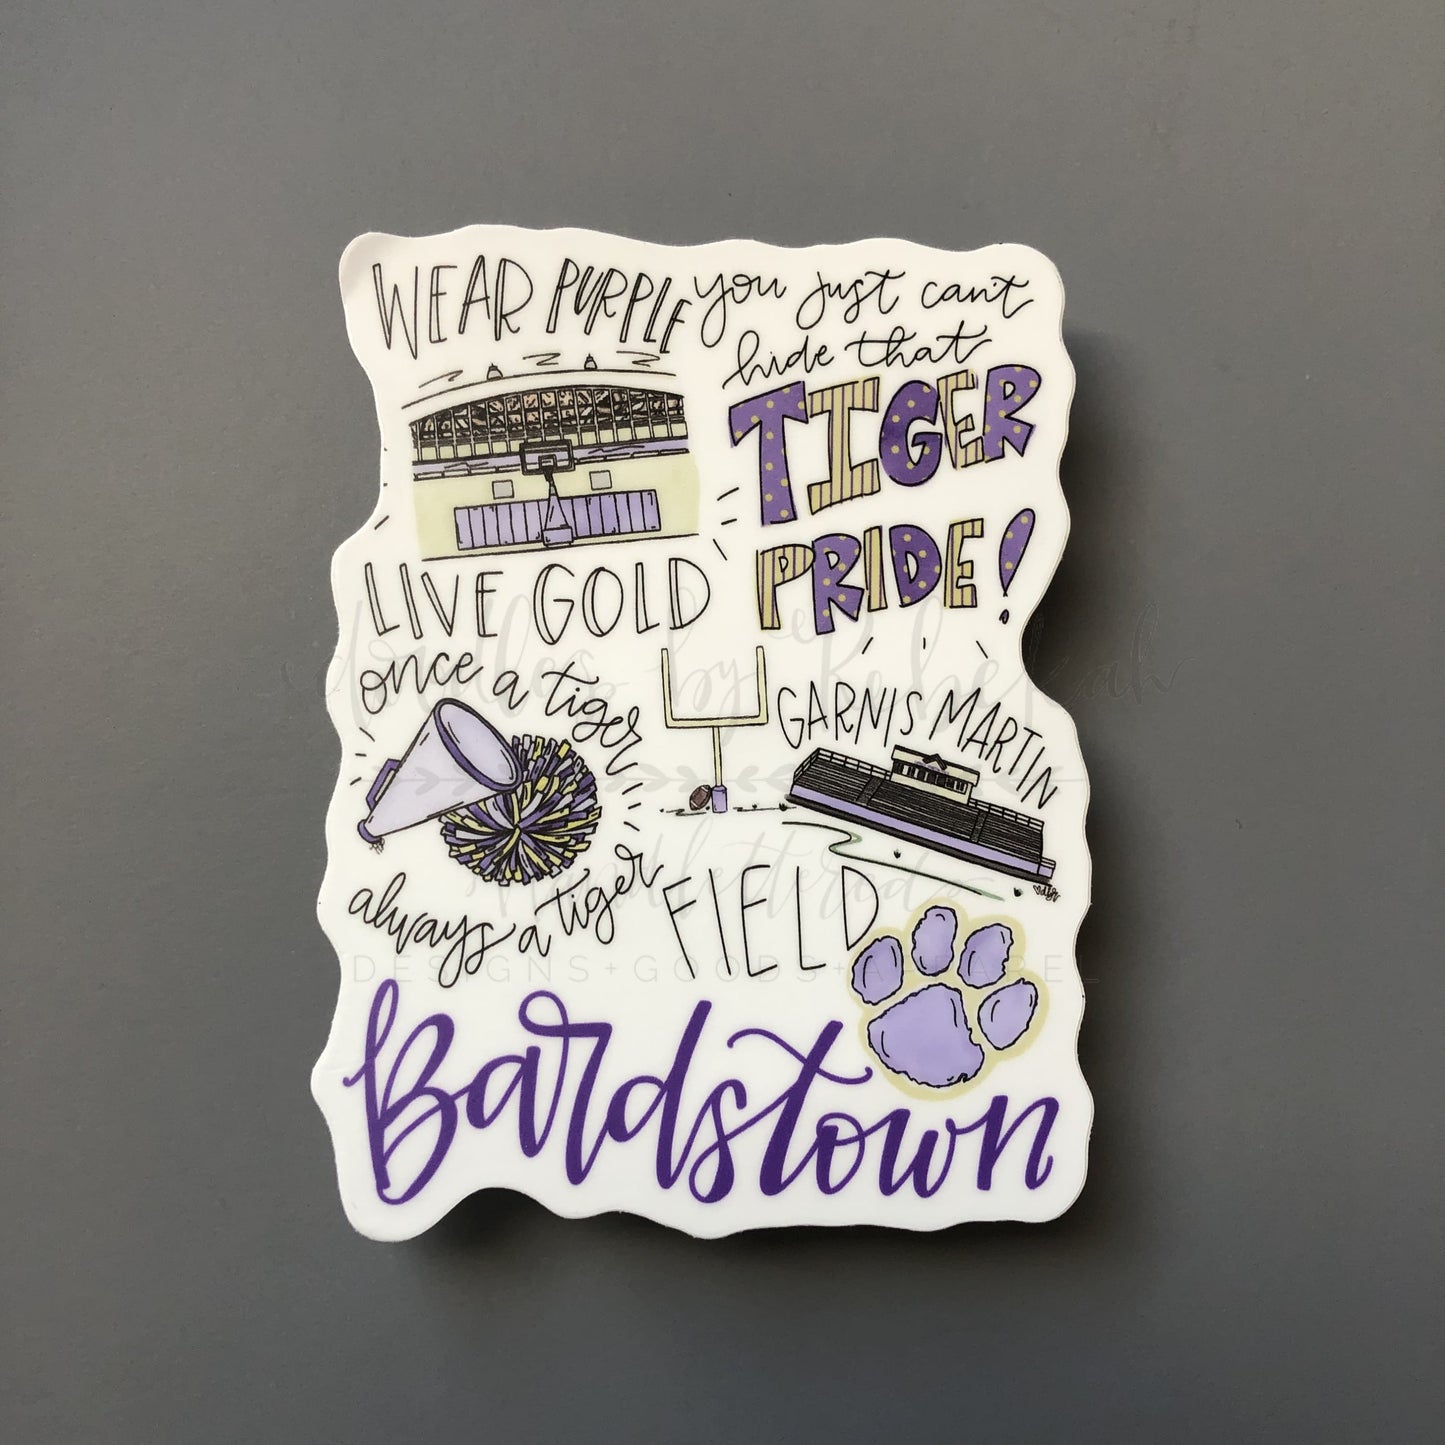 WEAR PURPLE
LIVE GOLD
you just can't
hide that
TIGER
PRIDE!
once a tiger
always a tiger
GARNIS MARTIN
FIELD
Bardstown
doodles by Rebekah
handlettered
DESIGNS + GOODS + APPAREL